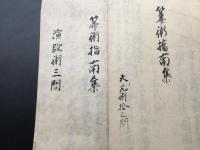 算術指南集
天元術拾三問
算術指南集
演段術三問